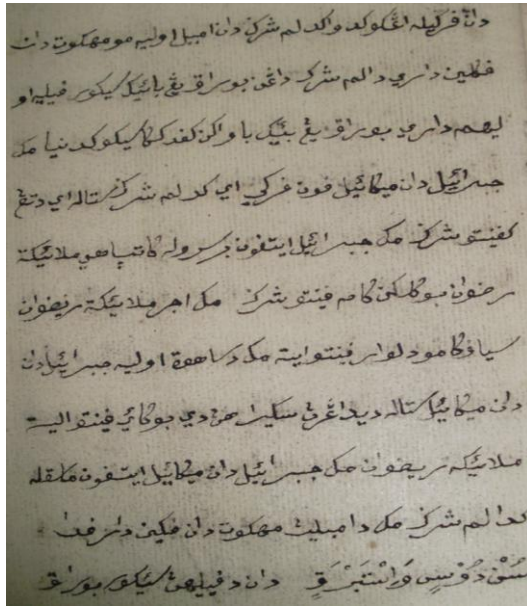 دان فرکیله اڠکو کدوا کدالم شرک دان امبل اوليه مو مهکوت دان
فکاين داري دالم شرک داڠن بوراق يڠ بائيک سيکور فيليه او
ليهم داري بوراق يڠ بئيک باواکن کفد ککاسيکو کدنيا مک
جبرائيل دان ميکائيل فون فرکي اي کدالم شرک ستاله اي داتڠ
کفينتو شرک مک جبرائيل ايتفون برسروله کات ياهي ملائيکة
رضوان بوکاکن کامي فينتو شرک مک اجر ملائيکة ريضوان
سياف کامو دلوار فينتو ايت مک دساهوة اوليه جبرائيل دان
دان ميکائيل ستاله ديداڠرڽ سکيرا هن دي بوکائي فينتو اليه
ملائيکه ريضوان مک جبرائيل دان ميکائيل ايتفون ماسقله
کدالم شرک مک دامبلڽ مهکوت دان فکاين داريفد
سندوس واستبرق دان دفيليهڽ سيکور بوراق